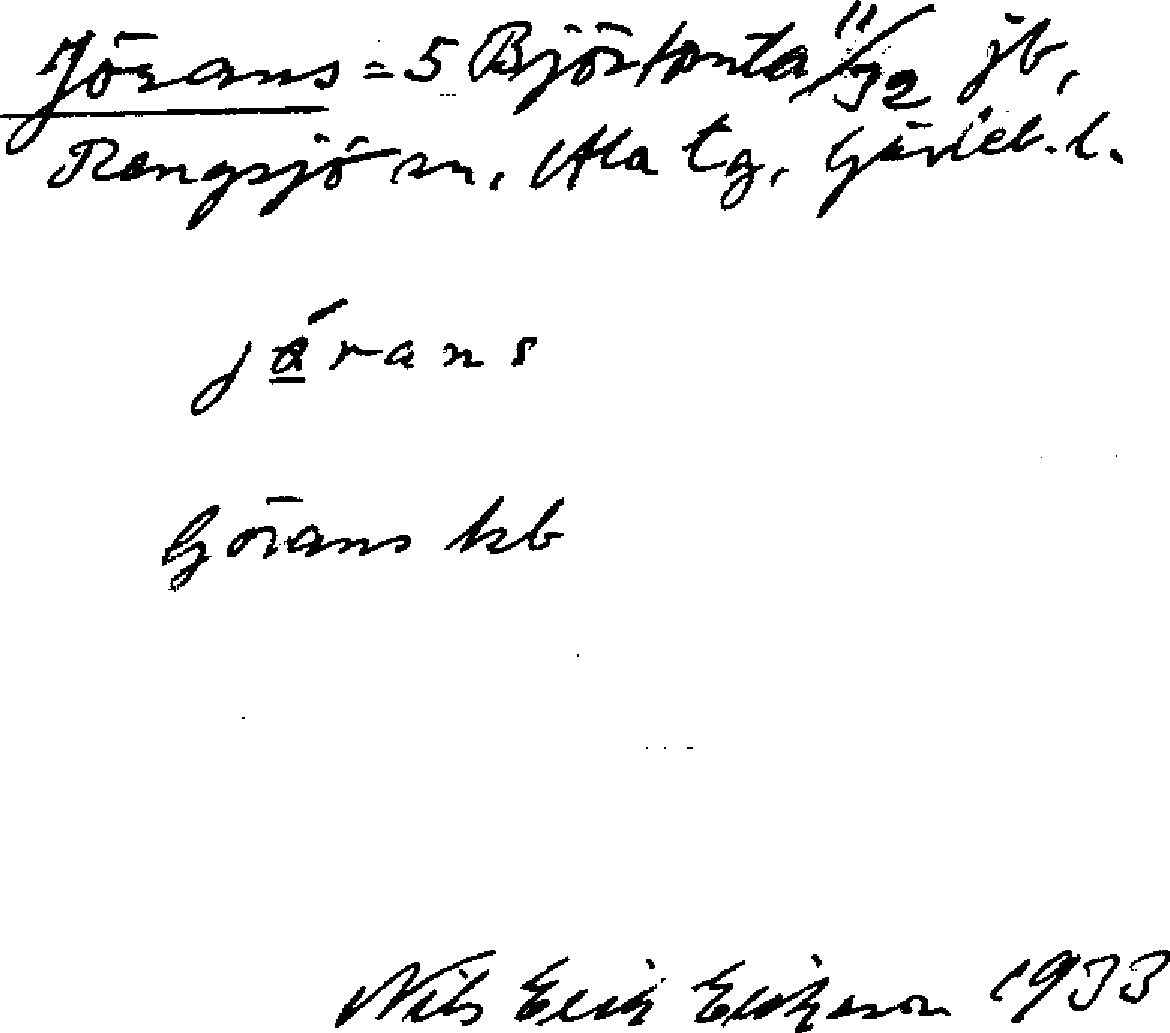 Jörans = 5 Björtomta 11/32 jb,
Rengsjö sn, Ala tg, Gävleb. l.
jάrans
Görans kb
Nils Erik Erikson 1933